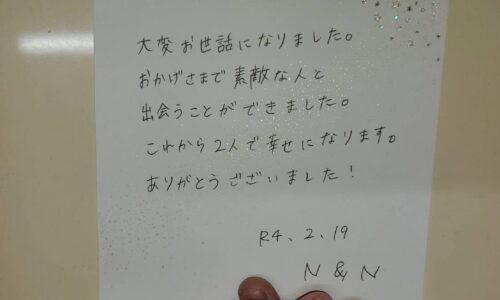 大変お世話になりました。
おかげさまで素敵な人と
出会うことができました。
これから2人で幸せになります。
ありがとうございました!
R4、2、19
N & N